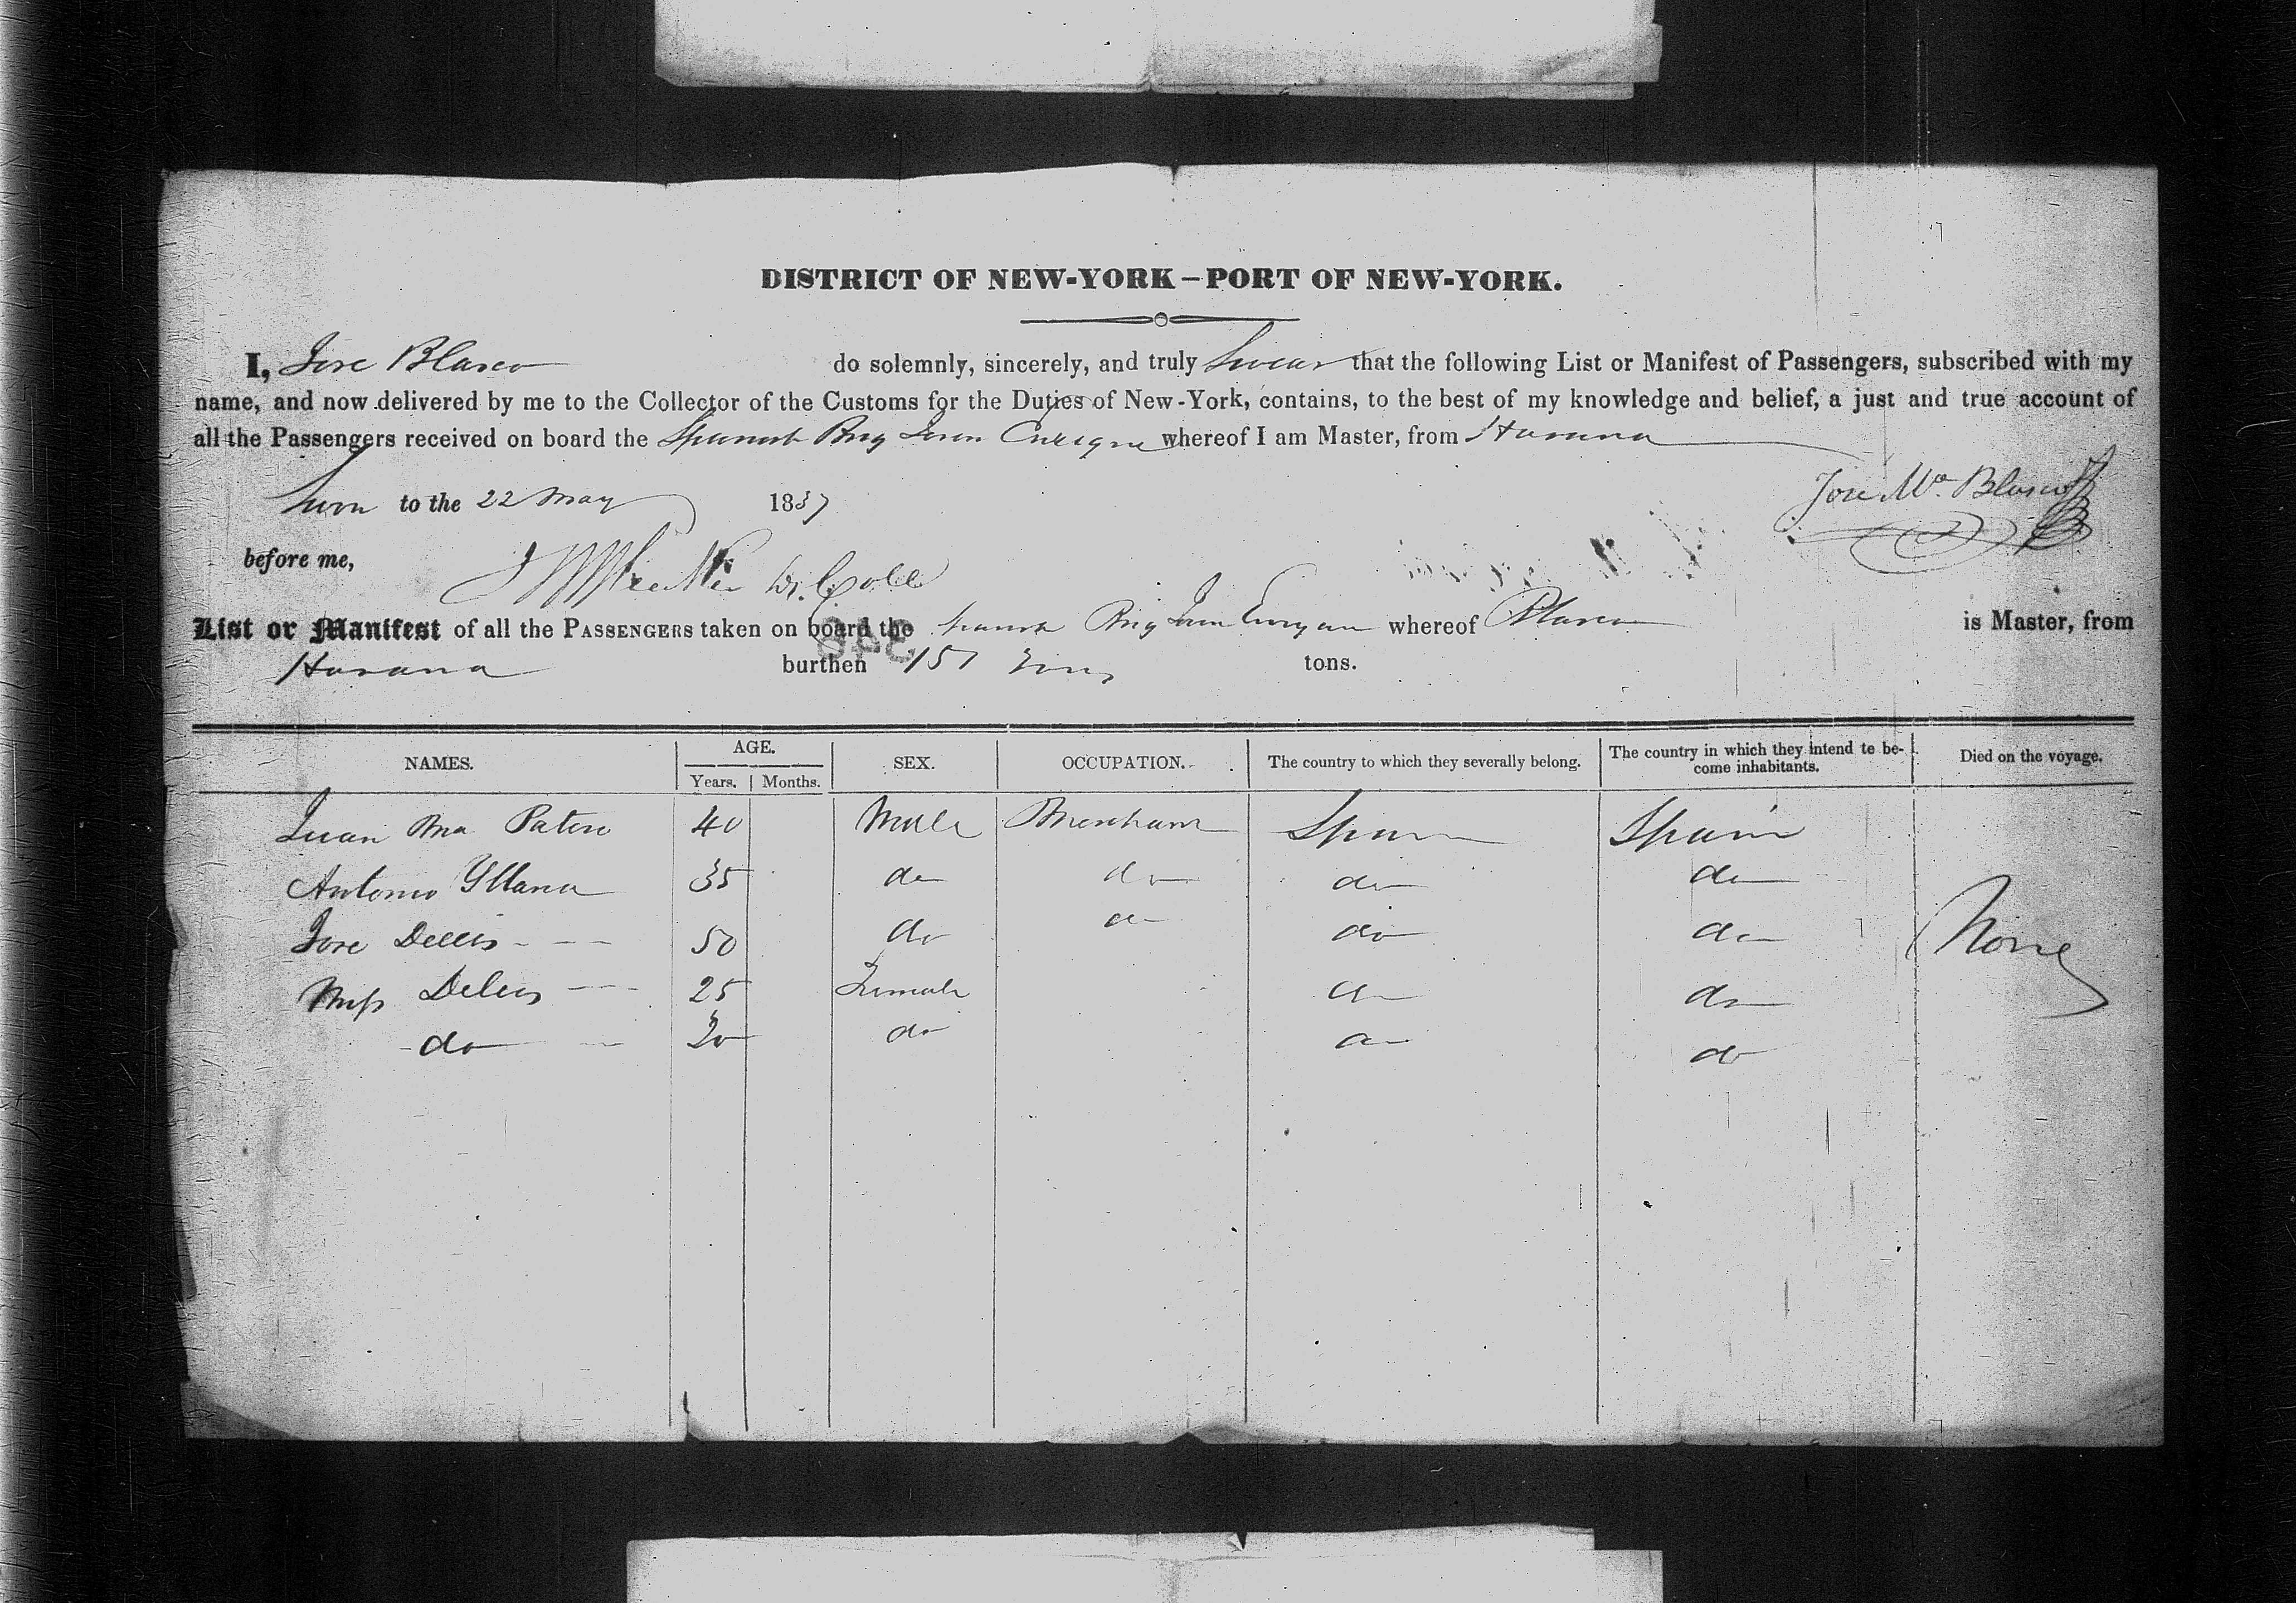 DISTRICT OF NEW-YORK – PORT OF NEW-YORK.
I, Jose Blasco do solemnly, sincerely, and truly Swear that the following List or Manifest of Passengers, subscribed with my
name, and now delivered by me to the Collector of the Customs for the Duties of New-York, contains, to the best of my knowledge and belief, a just and true account of
all the Passengers received on board the Spanish Brig whereof I am Master, from Havana
Jose Ma. Blasco
Sworn to the 22 May 1837
before me,
List or Manifest of all the PASSENGERS taken on board the Spanish Brig whereof Blasco is Master, from
Havana burthen 157 Tons tons.
NAMES. AGE. SEX. OCCUPATION. The country to which they severally belong. The country in which they intend to be- Died on the voyage.
Years. Months. come inhabitants.
Juan Ma 40 Male Merchant Spain Spain
Antonio Yllana 35 do do do do
Jose 50 do do do do None
Miss 25 Female do do
do 20 do do do